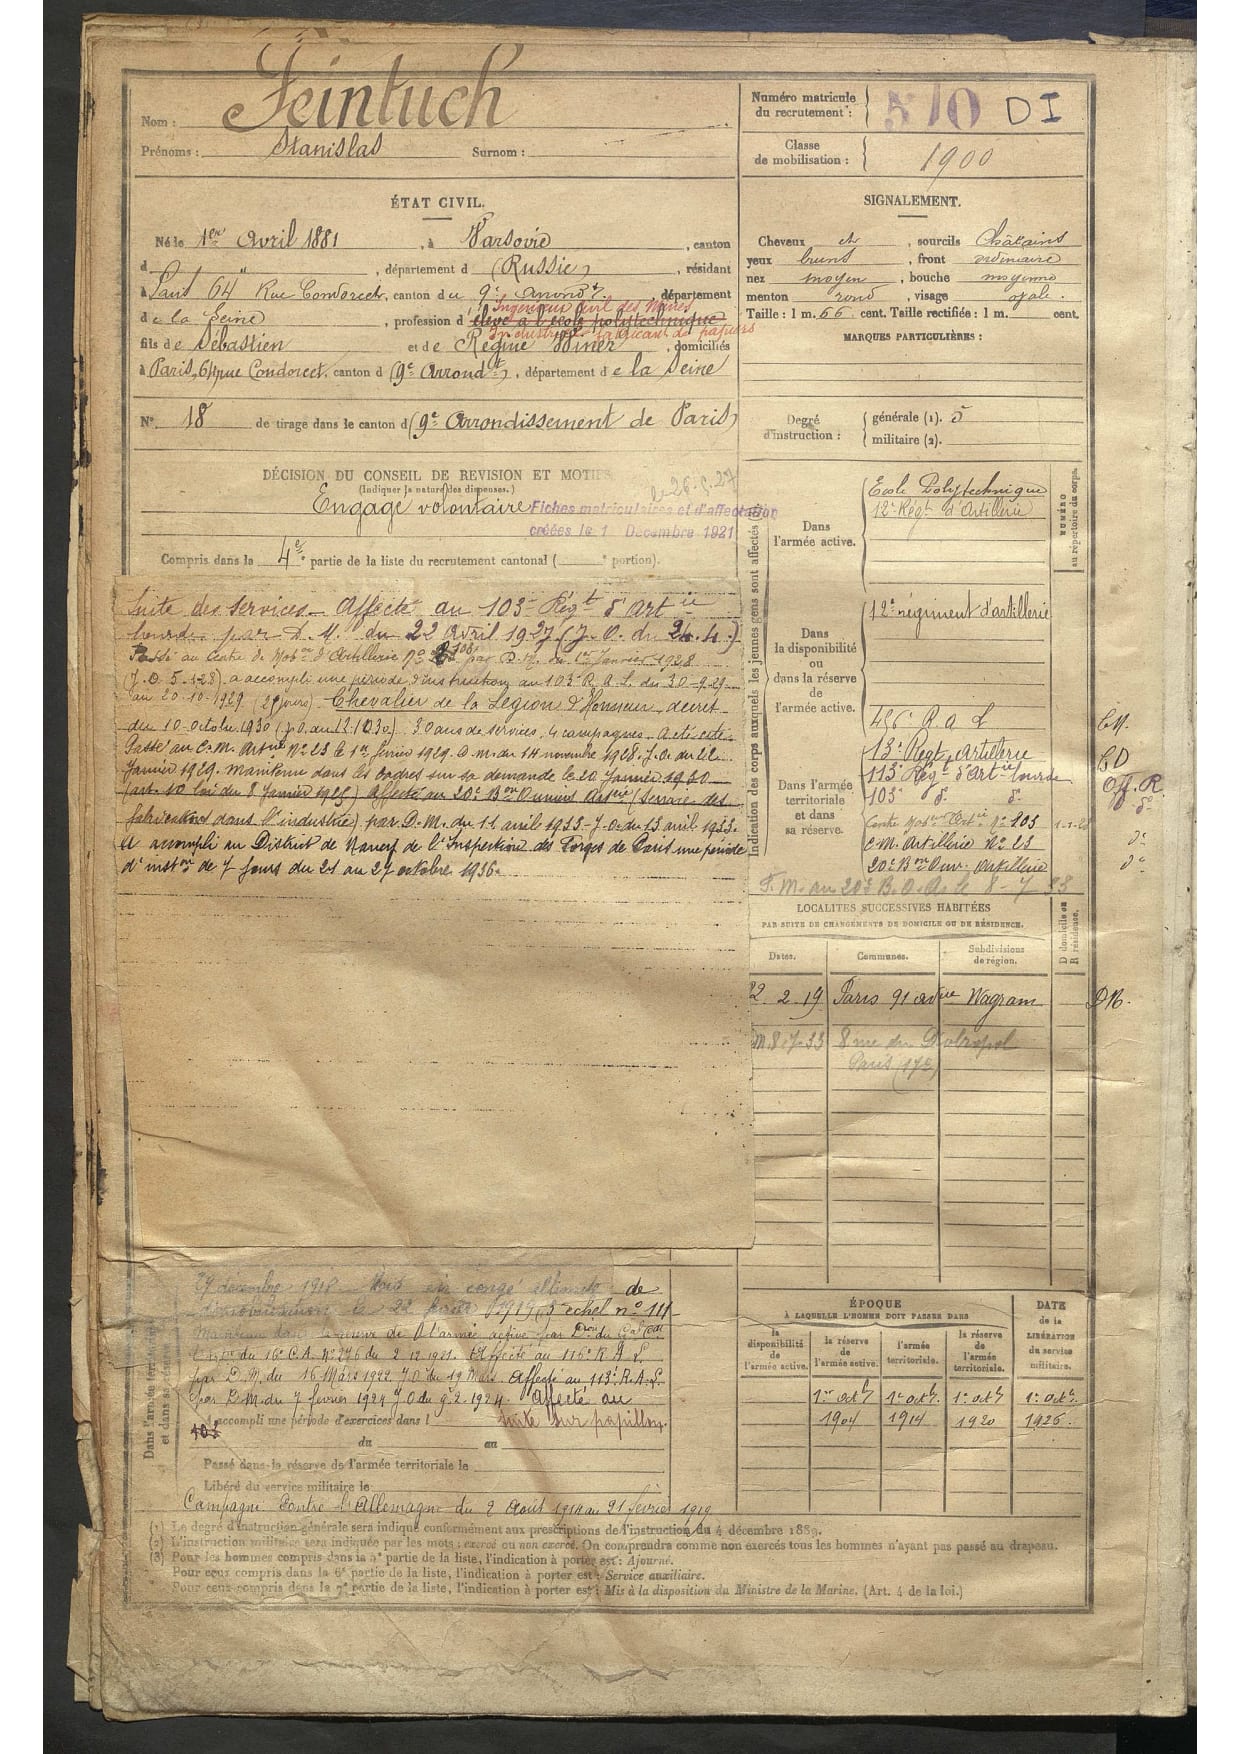 Nom : Feintuch
Prénoms : Stanislas Surnom :
Numéro matricule du recrutement : 510 DI
Classe de mobilisation : 1900
ÉTAT CIVIL.
Né le 1er Avril 1881, à Varsovie, canton
d , département d (Russie), résidant
à Paris 64 Rue Condorcet, canton du 9e Arrondt, département
Ingénieur civil des Mines
de la Seine, profession d élève à l'école polytechnique
Industriel fabricant de papiers
fils de Sébastien et de Régine Winer, domiciliés
à Paris, 64 rue Condorcet, canton d (9e Arrondt), département de la Seine
N° 18 de tirage dans le canton d (9e Arrondissement de Paris)
SIGNALEMENT.
Cheveux ch , sourcils Châtains
yeux bruns , front ordinaire
nez moyen , bouche moyenne
menton rond , visage ovale.
Taille : 1 m. 66 cent. Taille rectifiée : 1 m. cent.
MARQUES PARTICULIÈRES :
Degré d'instruction : générale (1). 5
militaire (2).
DÉCISION DU CONSEIL DE REVISION ET MOTIFS
(Indiquer la nature des dispenses.)
le 26.5.27
Engagé volontaire
Fiches matriculaires et d'affectation
créées le 1 Décembre 1921
Compris dans la 4e partie de la liste du recrutement cantonal ( e portion).
Suite des services – Affecté au 103e Régt d'Artie
lourde par D.M. du 22 avril 1927 (J.O. du 24.4.)
Passé au Centre de Mobon d'Artillerie N° 103 par D.M. du 1er Janvier 1928
(J.O. 5-1-28) a accompli une période d'instruction au 103e R.A.L. du 30-9-29
au 20-10-1929 (21 jours). Chevalier de la Légion d'Honneur, décret
du 10 octobre 1930 (J.O. du 12.10.30). 30 ans de services, 4 campagnes. A été cité.
Passé au C.M. Artie N° 23 le 1er février 1929. D.M. du 14 novembre 1928. J.O. du 22
Janvier 1929. Maintenu dans les cadres sur sa demande le 20 Janvier 1930
(art. 10 loi du 8 Janvier 1925) Affecté au 20e Bon Ouvriers Artie (Service des
fabrications dans l'industrie) par D.M. du 11 avril 1933 – J.O. du 13 avril 1933.
A accompli au District de Nancy de l'Inspection des Forges de Paris une période
d'inston de 7 jours du 21 au 27 octobre 1936.
Indication des corps auxquels les jeunes gens sont affectés
NUMÉRO au répertoire du corps.
Dans l'armée active.
Ecole Polytechnique
12e Régt d'Artillerie
Dans la disponibilité ou dans la réserve de l'armée active.
12e régiment d'artillerie
Dans l'armée territoriale et dans sa réserve.
13e Régt Artillerie
113e Régt d'Artie lourde Off. R.
103e d° d°
Centre Mobon Artie N° 103 1-1-28
C.M. Artillerie N° 23 d°
20e Bon Ouv. Artillerie d°
F.M. au 20e B.O.A. le 8-7-33
LOCALITÉS SUCCESSIVES HABITÉES
PAR SUITE DE CHANGEMENTS DE DOMICILE OU DE RÉSIDENCE.
Dates. Communes. Subdivisions de région. D domicile ou R résidence.
22 2 19 Paris 91 avenue Wagram
8-7-33 8 rue du Débropol
Paris (17e)
27 décembre 1918. Mis en congé illimité de
démobilisation le 22 février 1919, 5e échel n° 111
Maintenu dans la réserve de l'armée active par Don du Gal Cdt
16e C.A. N° 276 du 2 12 1921. Affecté au 116e R.A.L.
par D.M. du 16 Mars 1922 J.O. du 19 Mars. Affecté au 113e R.A.L.
par D.M. du 7 février 1924 J.O. du 9.2.1924. Affecté au
103
A accompli une période d'exercices dans l suite sur papillon.
du au
Passé dans la réserve de l'armée territoriale le
Libéré du service militaire le
Campagne contre l'Allemagne du 2 Août 1914 au 21 février 1919
Dans l'armée territoriale et dans sa réserve
ÉPOQUE
À LAQUELLE L'HOMME DOIT PASSER DANS
la disponibilité de l'armée active. la réserve de l'armée active. l'armée territoriale. la réserve de l'armée territoriale.
DATE de la LIBÉRATION du service militaire.
1er octe 1904 1er octe 1914 1er octe 1920 1er octe 1926.
(1) Le degré d'instruction générale sera indiqué conformément aux prescriptions de l'instruction du 4 décembre 1889.
(2) L'instruction militaire sera indiquée par les mots : exercé ou non exercé. On comprendra comme non exercés tous les hommes n'ayant pas passé au drapeau.
(3) Pour les hommes compris dans la 5e partie de la liste, l'indication à porter est : Ajourné.
Pour ceux compris dans la 6e partie de la liste, l'indication à porter est : Service auxiliaire.
Pour ceux compris dans la 7e partie de la liste, l'indication à porter est : Mis à la disposition du Ministre de la Marine. (Art. 4 de la loi.)